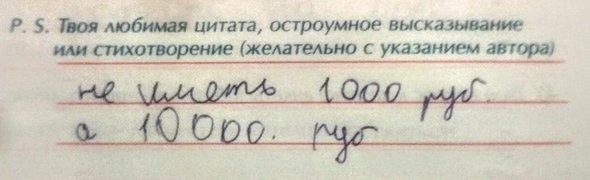 P. S. Твоя любимая цитата, остроумное высказывание
или стихотворение (желательно с указанием автора)
не иметь 1000 руб.
а 10000. руб